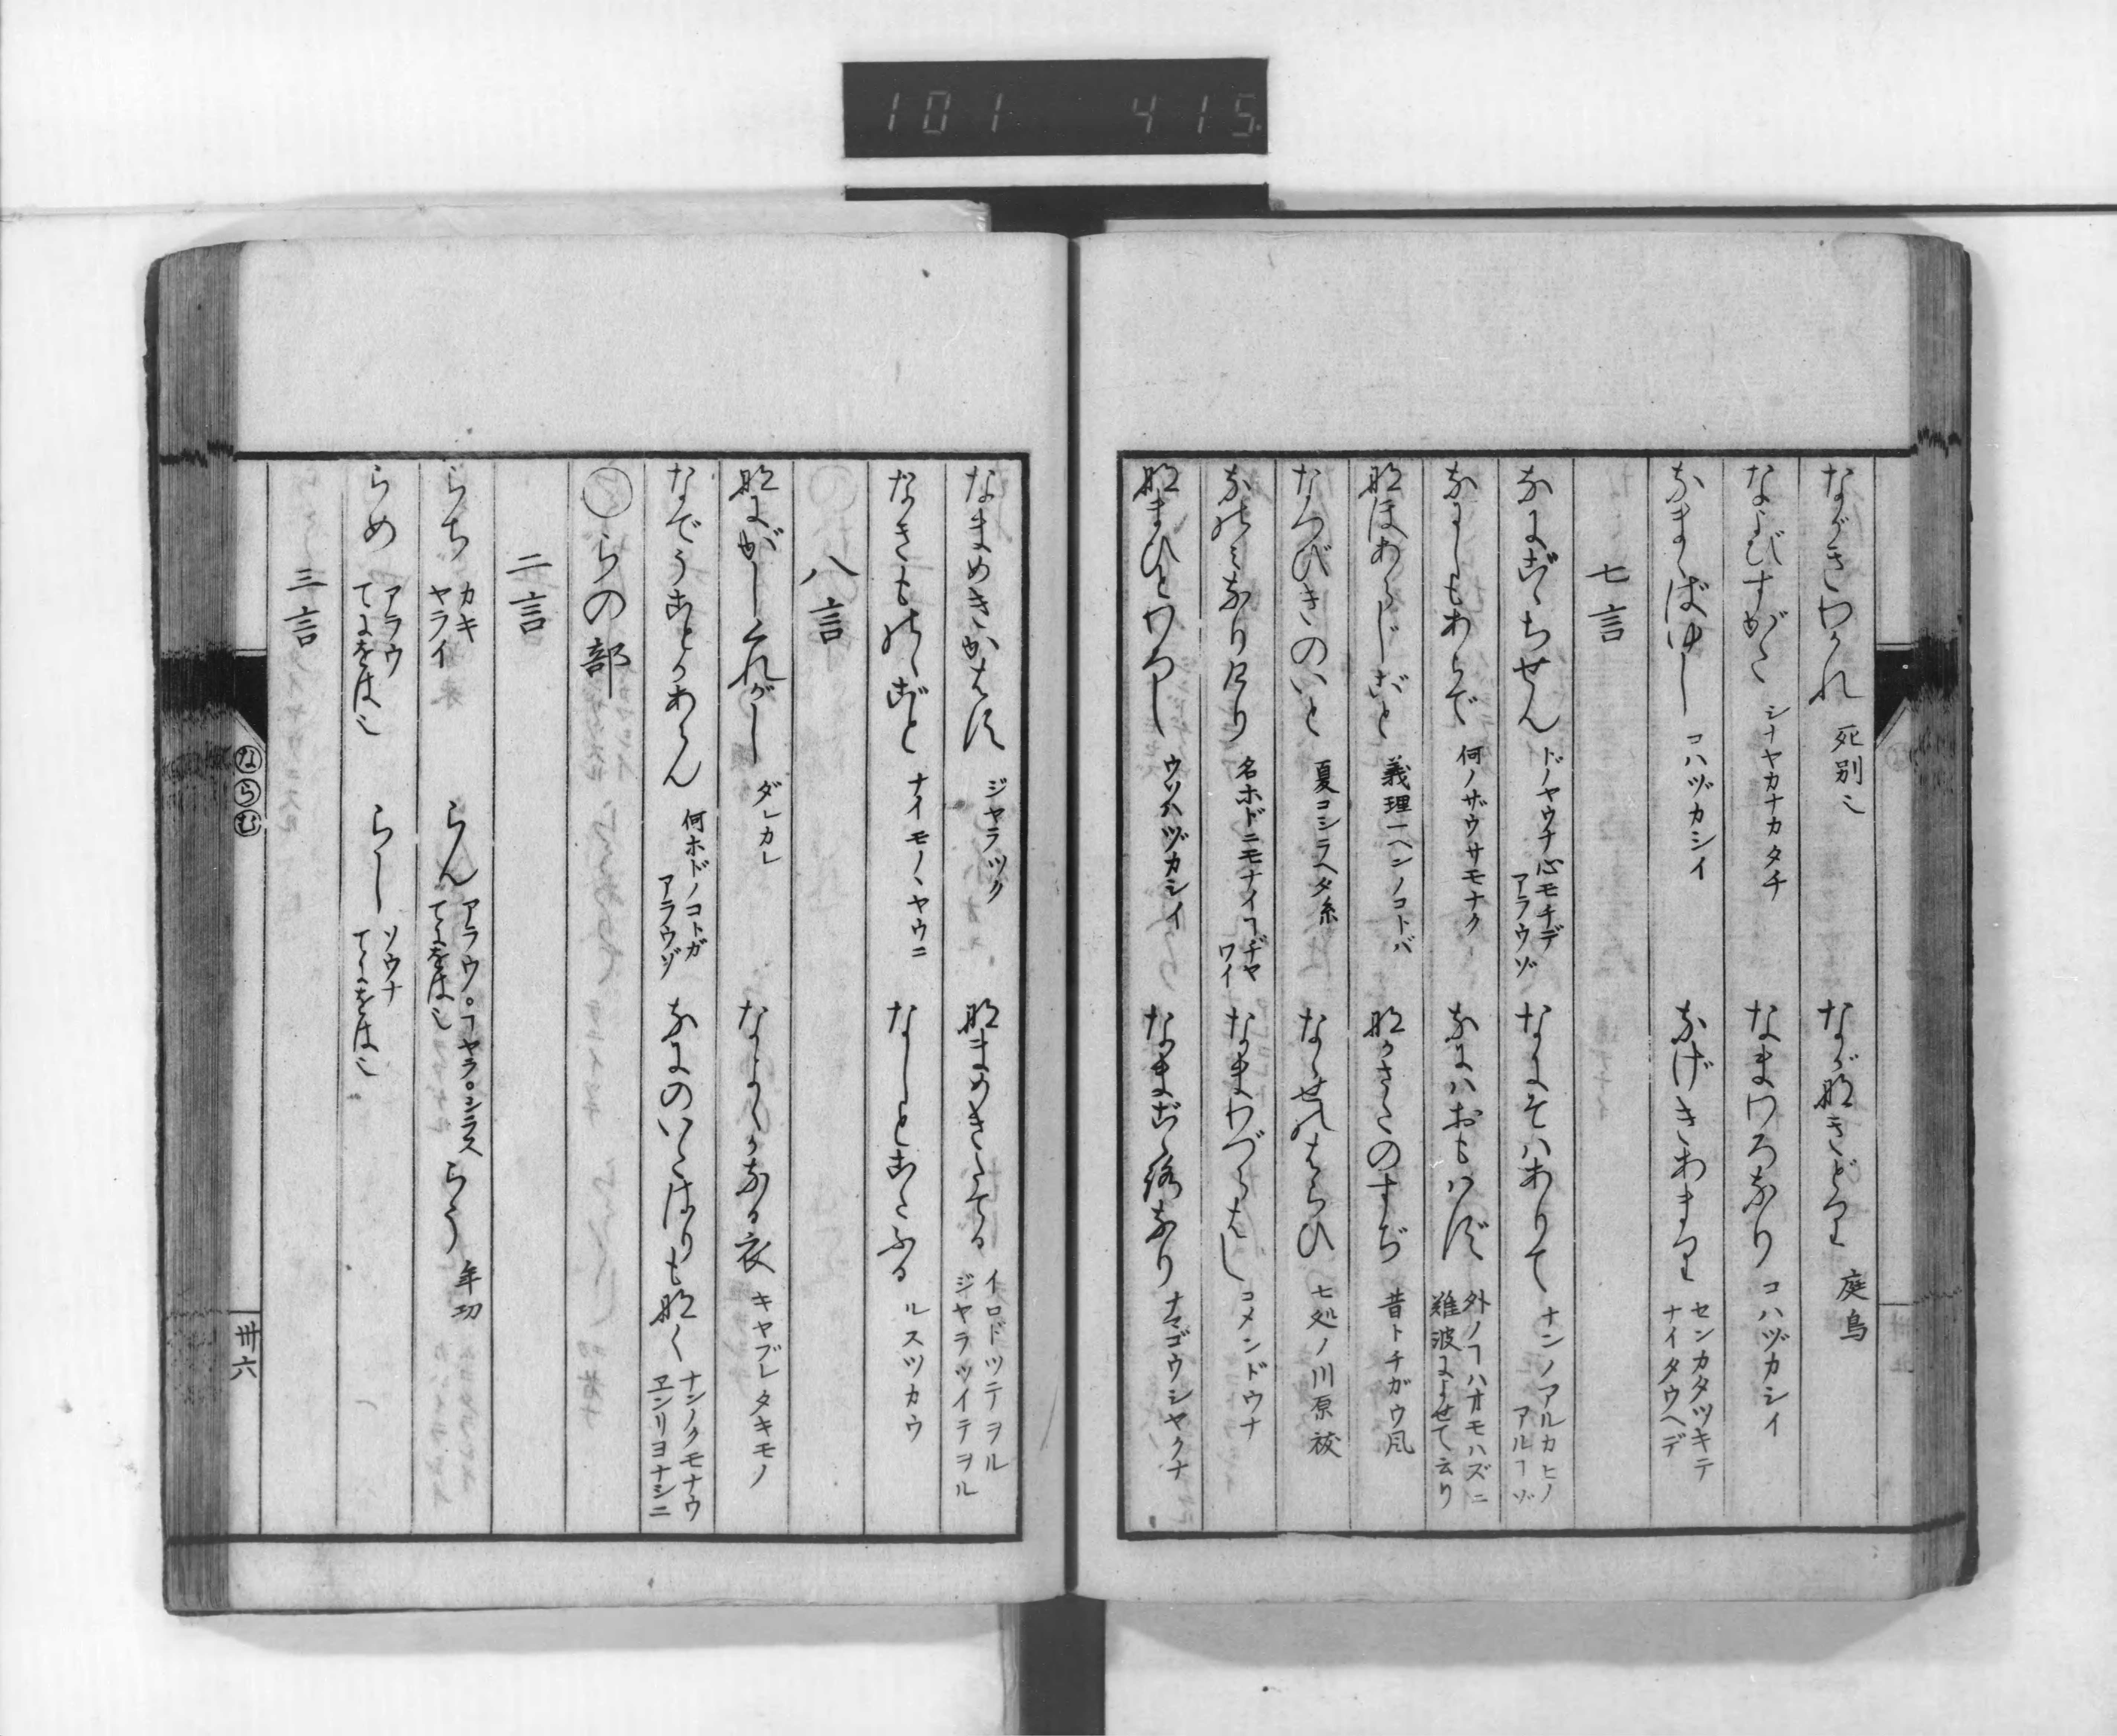 101 415
ながきわかれ 死別也 ながなきどり 庭鳥
なよびすがた シナヤカナカタチ なまわろなり コハヅカシイ
なまかばゆし コハヅカシイ なげきあまり センカタツキテ ナイタウヘデ
七言
なにごゝちせん ドノヤウナ心モチデ アラウゾ なにそハありて ナンノアルカヒノ アルヿゾ
なにしもあらで 何ノザウサモナク なにハおもハず 外ノヿハオモハズニ 難波によせて云り
なほあらじごと 義理一ヘンノコトバ なかきたのすぢ 昔トチガウ風
なつびきのいと 夏コシラヘタ糸 なゝせのはらひ 七処ノ川原祓
なのみなりけり 名ホドニモナイヿヂヤワイ なまわづらはし コメンドウナ
なまひとわろし ウソハヅカシイ なまごゝろなり ナマゴウシヤクナ
なまめきかはす ジヤラツク なまめきたてる イロドツテヲル ジヤラツイテヲル
なきものゝごと ナイモノヽヤウニ なしとこたふる ルスツカウ
八言
なにがしくれがし ダレカレ なよゝかなる衣 キヤブレタキモノ
なでうことかあらん 何ホドノコトガ アラウゾ なにのいたはりも なく ナンノクモナウ ヱンリヨナシニ
らの部
二言
らち カキ ヤライ らん アラウ。ヿヤラ。シラス てにをは也 らう 年功
らめ アラウ てにをは也 らし ソウナ てにをは也
三言
ならむ
卅六